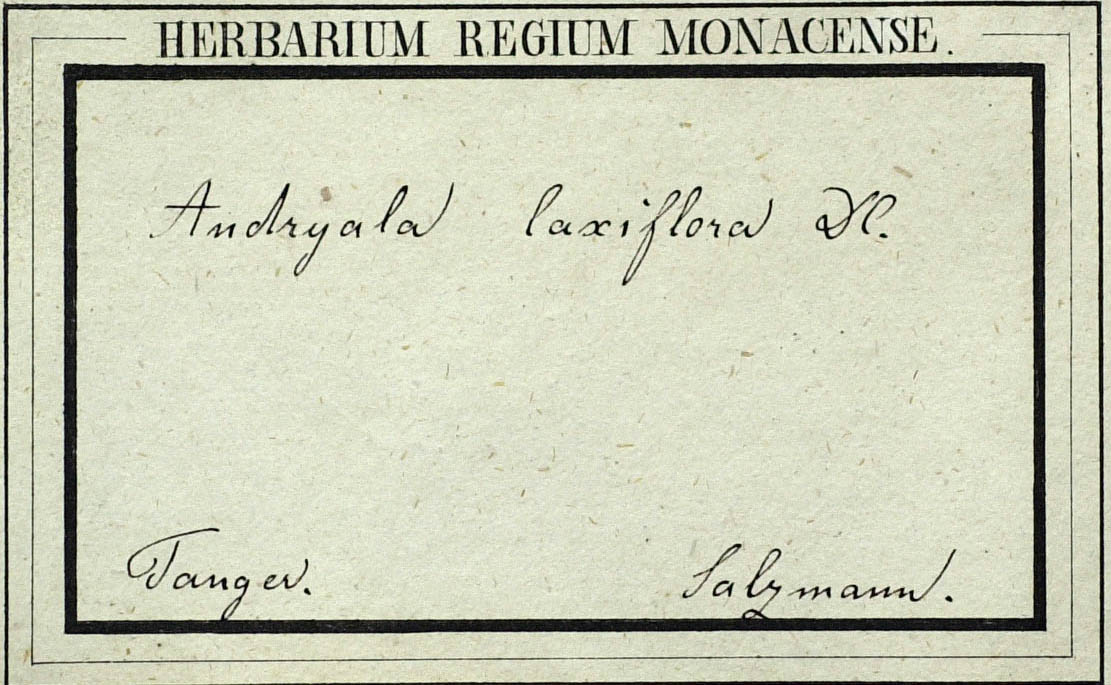 HERBARIUM REGIUM MONACENSE.
Andryala laxiflora DC.
Tanger. Salzmann.